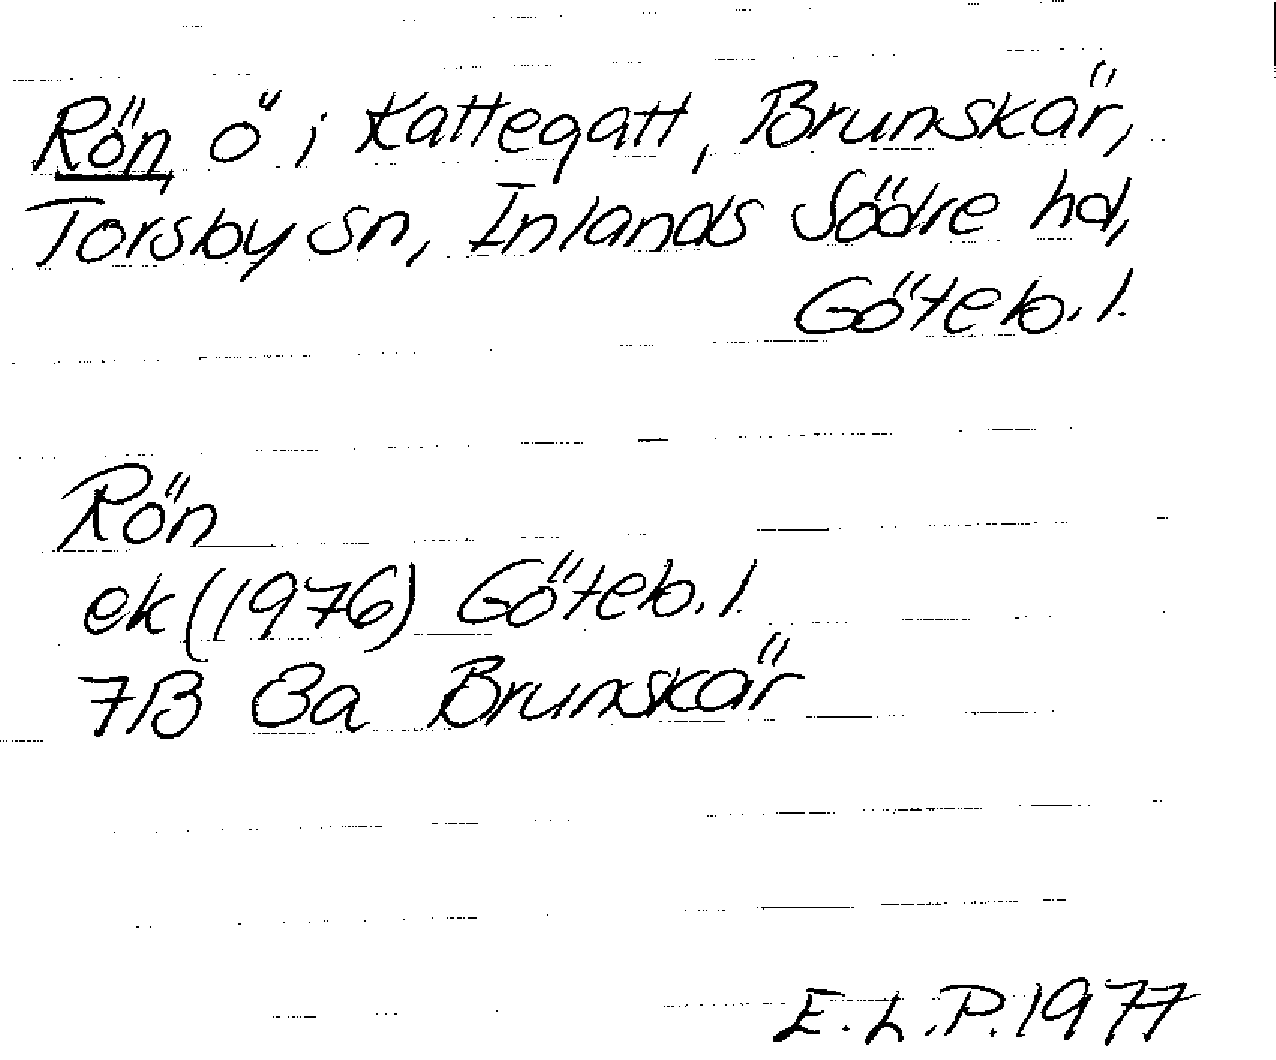 Rön, ö i Kattegatt, Brunskär,
Torsby sn, Inlands Södre hd,
Göteb. l.
Rön
ek (1976) Göteb. l.
7B 8a Brunskär
E.L.P. 1977